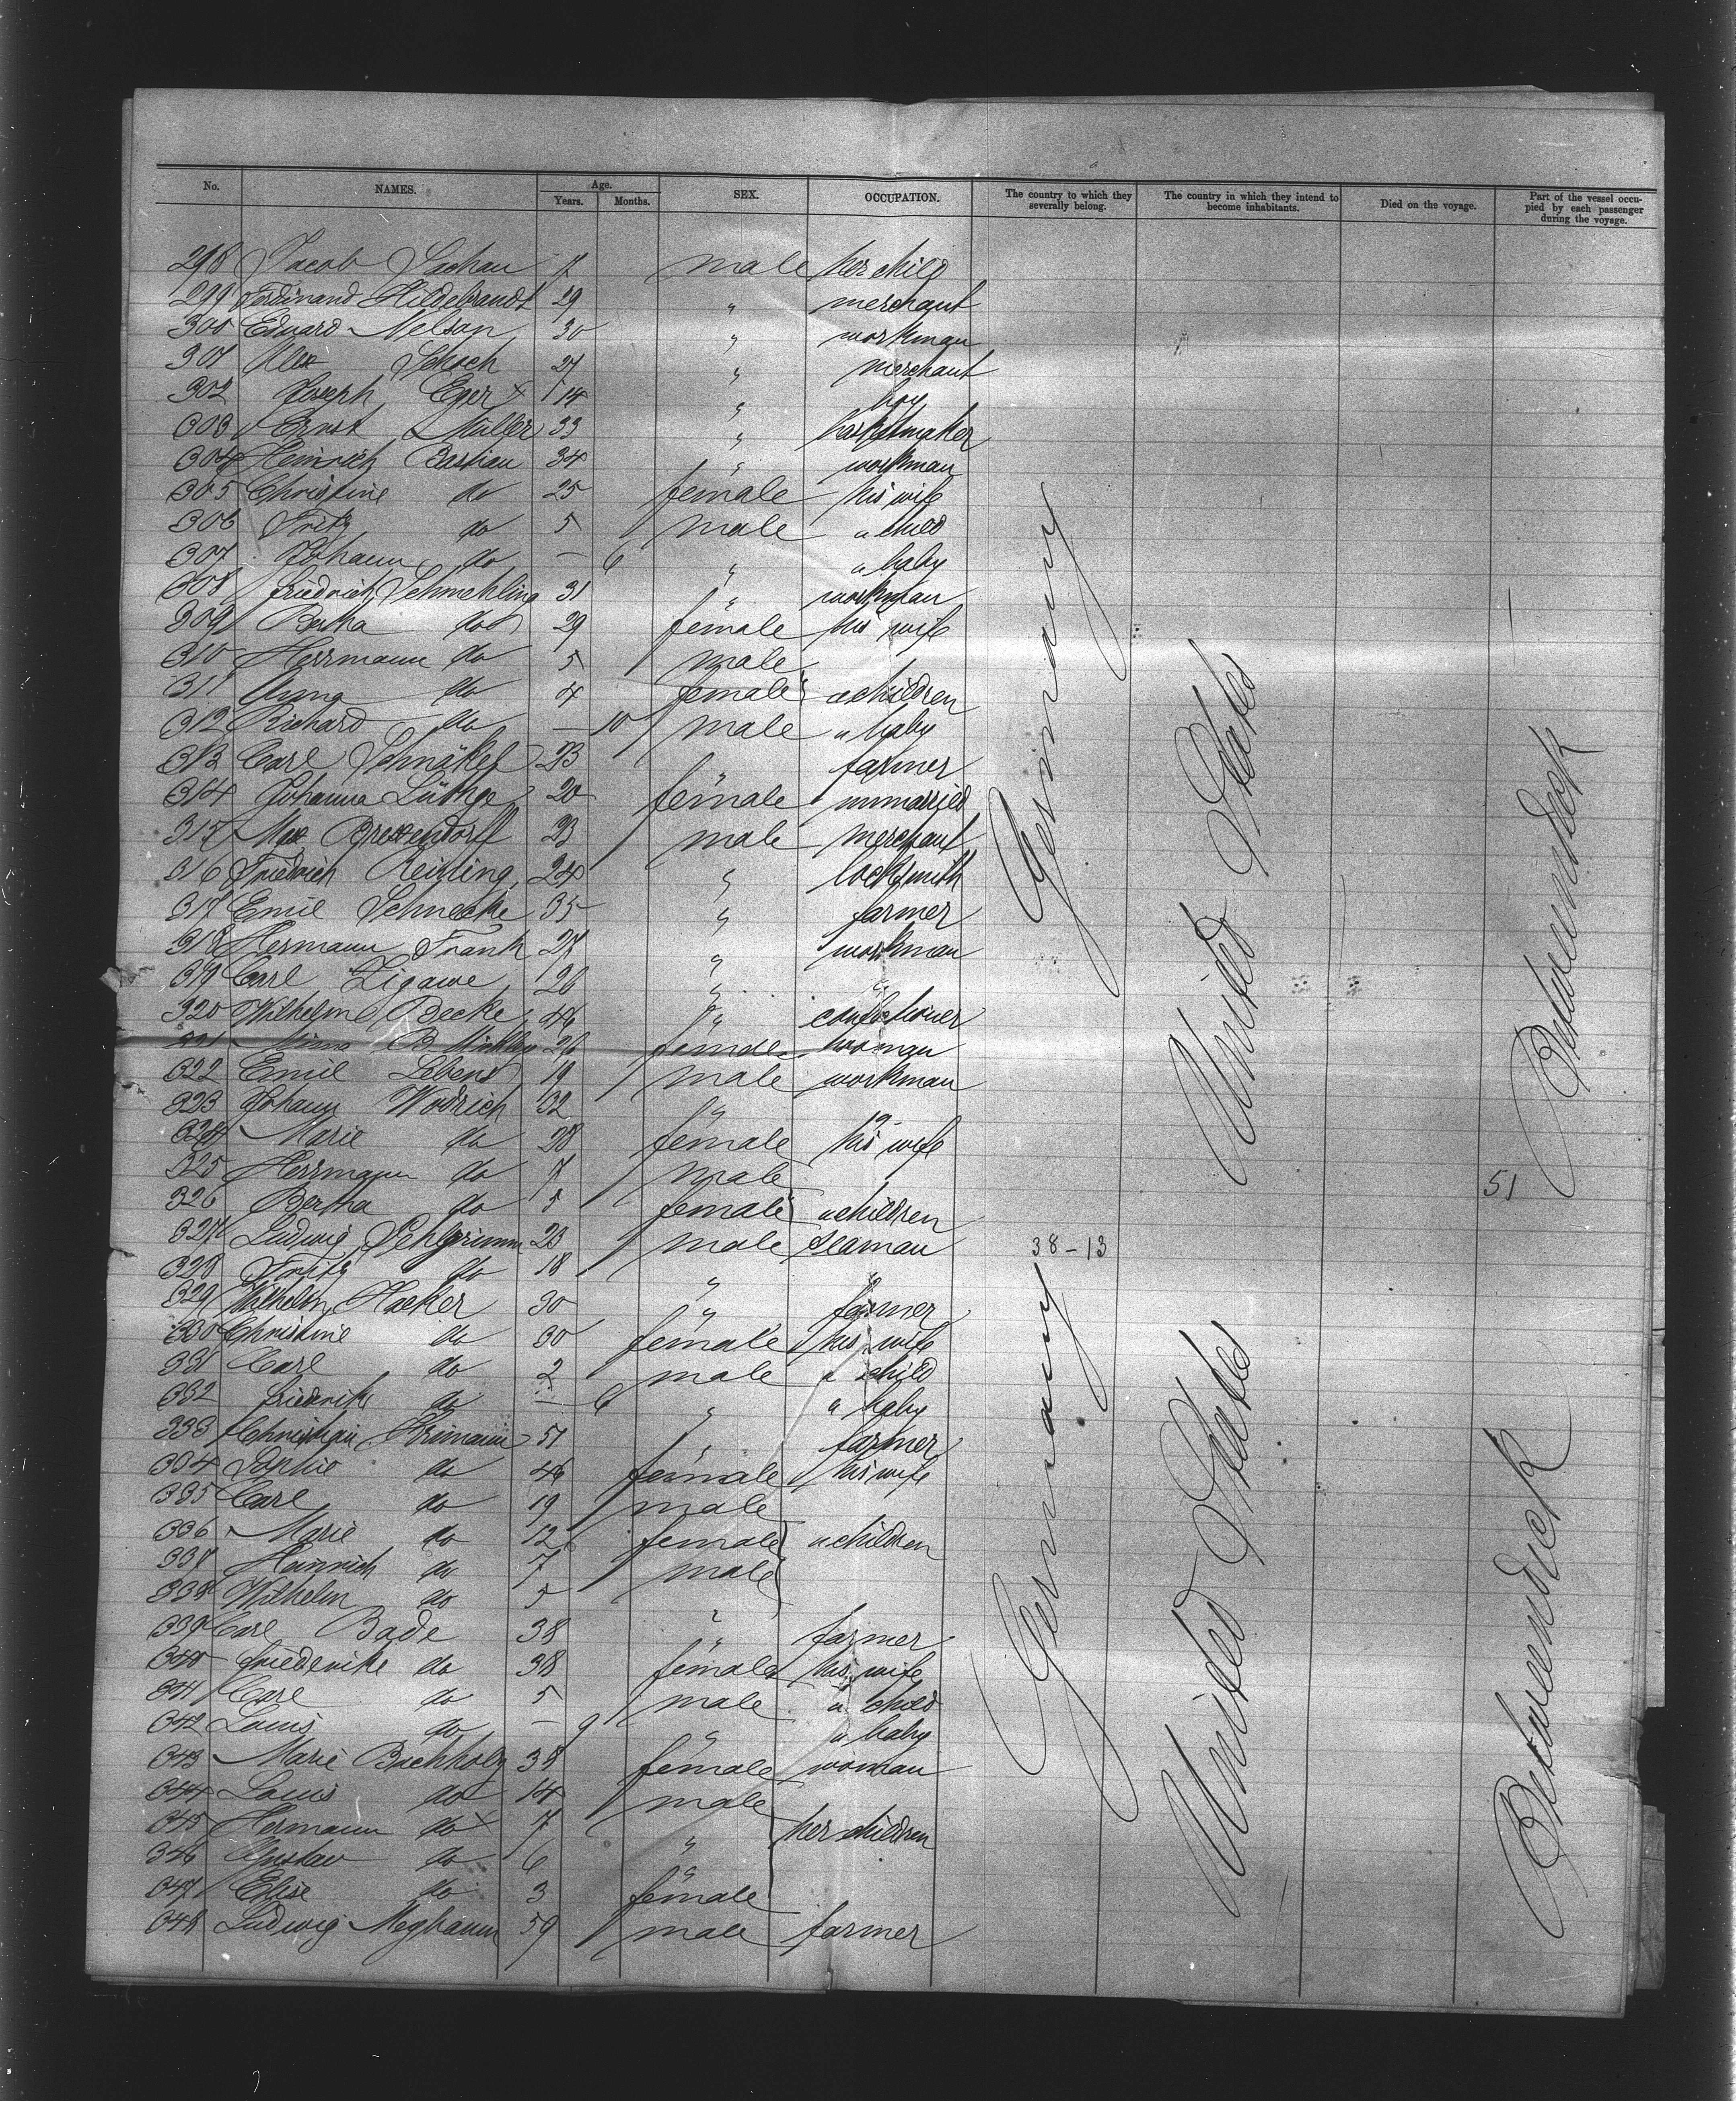 No. NAMES. Age. Years. Months. SEX. OCCUPATION. The country to which they severally belong. The country in which they intend to become inhabitants. Died on the voyage. Part of the vessel occupied by each passenger during the voyage.
298 Jacob Sachau male her child
299 Ferdinand Hildebrandt 29 " merchant
300 Eduard Nelson 30 " workman
301 Alex Schoch 27 " merchant
302 Joseph Eger x 14 " boy
303 Ernst Müller 33 " basketmaker
304 Heinrich Bastian 34 " workman
305 Christine do 25 female his wife
306 Fritz do 5 male " child
307 Johann do — 6 " " baby
308 Friedrich Schmehling 31 " workman
309 Bertha do 29 female his wife
310 Herrmann do 5 male
311 Anna do 4 female " children
312 Richard do — 10 male " baby
313 Carl 23 " farmer
314 Johanna Lüthge 20 female unmarried
315 Max 23 male merchant
316 Friedrich Reisling 24 " locksmith
317 Emil Schnecke 35 " farmer
318 Hermann Frank 27 " workman
319 Carl Zigawe 26 " "
320 Wilhelm Becke 46 " confectioner
321 Minna 26 female woman
322 Emil 19 male workman
323 Johann Wodrich 32 "
324 Marie do 28 female his wife
325 Herrmann do 7 male
326 Bertha do 5 female " children
327 Ludwig 23 male seaman
328 Fritz do 18 " "
329 Wilhelm Hacker 30 " farmer
330 Christine do 30 female his wife
331 Carl do 2 male " child
332 Friederike do — 6 " " baby
333 Christian 51 " farmer
334 Sophie do 46 female his wife
335 Carl do 19 male
336 Marie do 12 female " children
337 Heinrich do 7 male
338 Wilhelm do 5 "
339 Carl Bade 38 " farmer
340 Friederike do 38 female his wife
341 Carl do 5 male " child
342 Louis do — 9 " " baby
343 Marie Bachholz 38 female woman
344 Louis do 14 male
345 Hermann do x 7 " her children
346 Gustav do 6 "
347 Elise do 3 female
348 Ludwig 59 male farmer
Germany
United States
Betweendeck
51
38-13
Germany
United States
Betweendeck